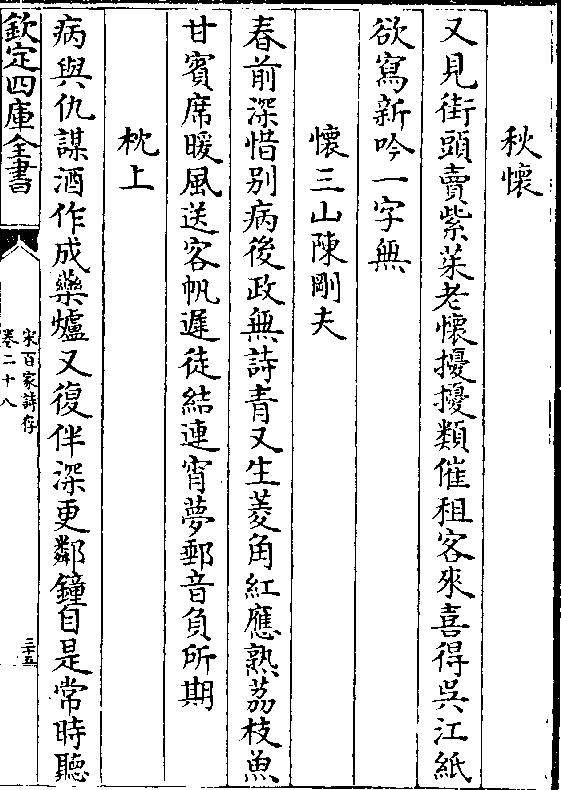 秋懷
又見街頭賣紫茱老懷擾擾類催租客來喜得吳江紙
欲寫新吟一字無
懷三山陳剛夫
春前深惜别病後政無詩青又生菱角紅應熟荔枝魚
甘賓席暖風送客帆遲徒結連宵夢郵音負所期
枕上
病與仇謀酒作成藥爐又復伴深更鄰鐘自是常時聽
欽定四庫全書
宋百家詩存
卷二十八
三五